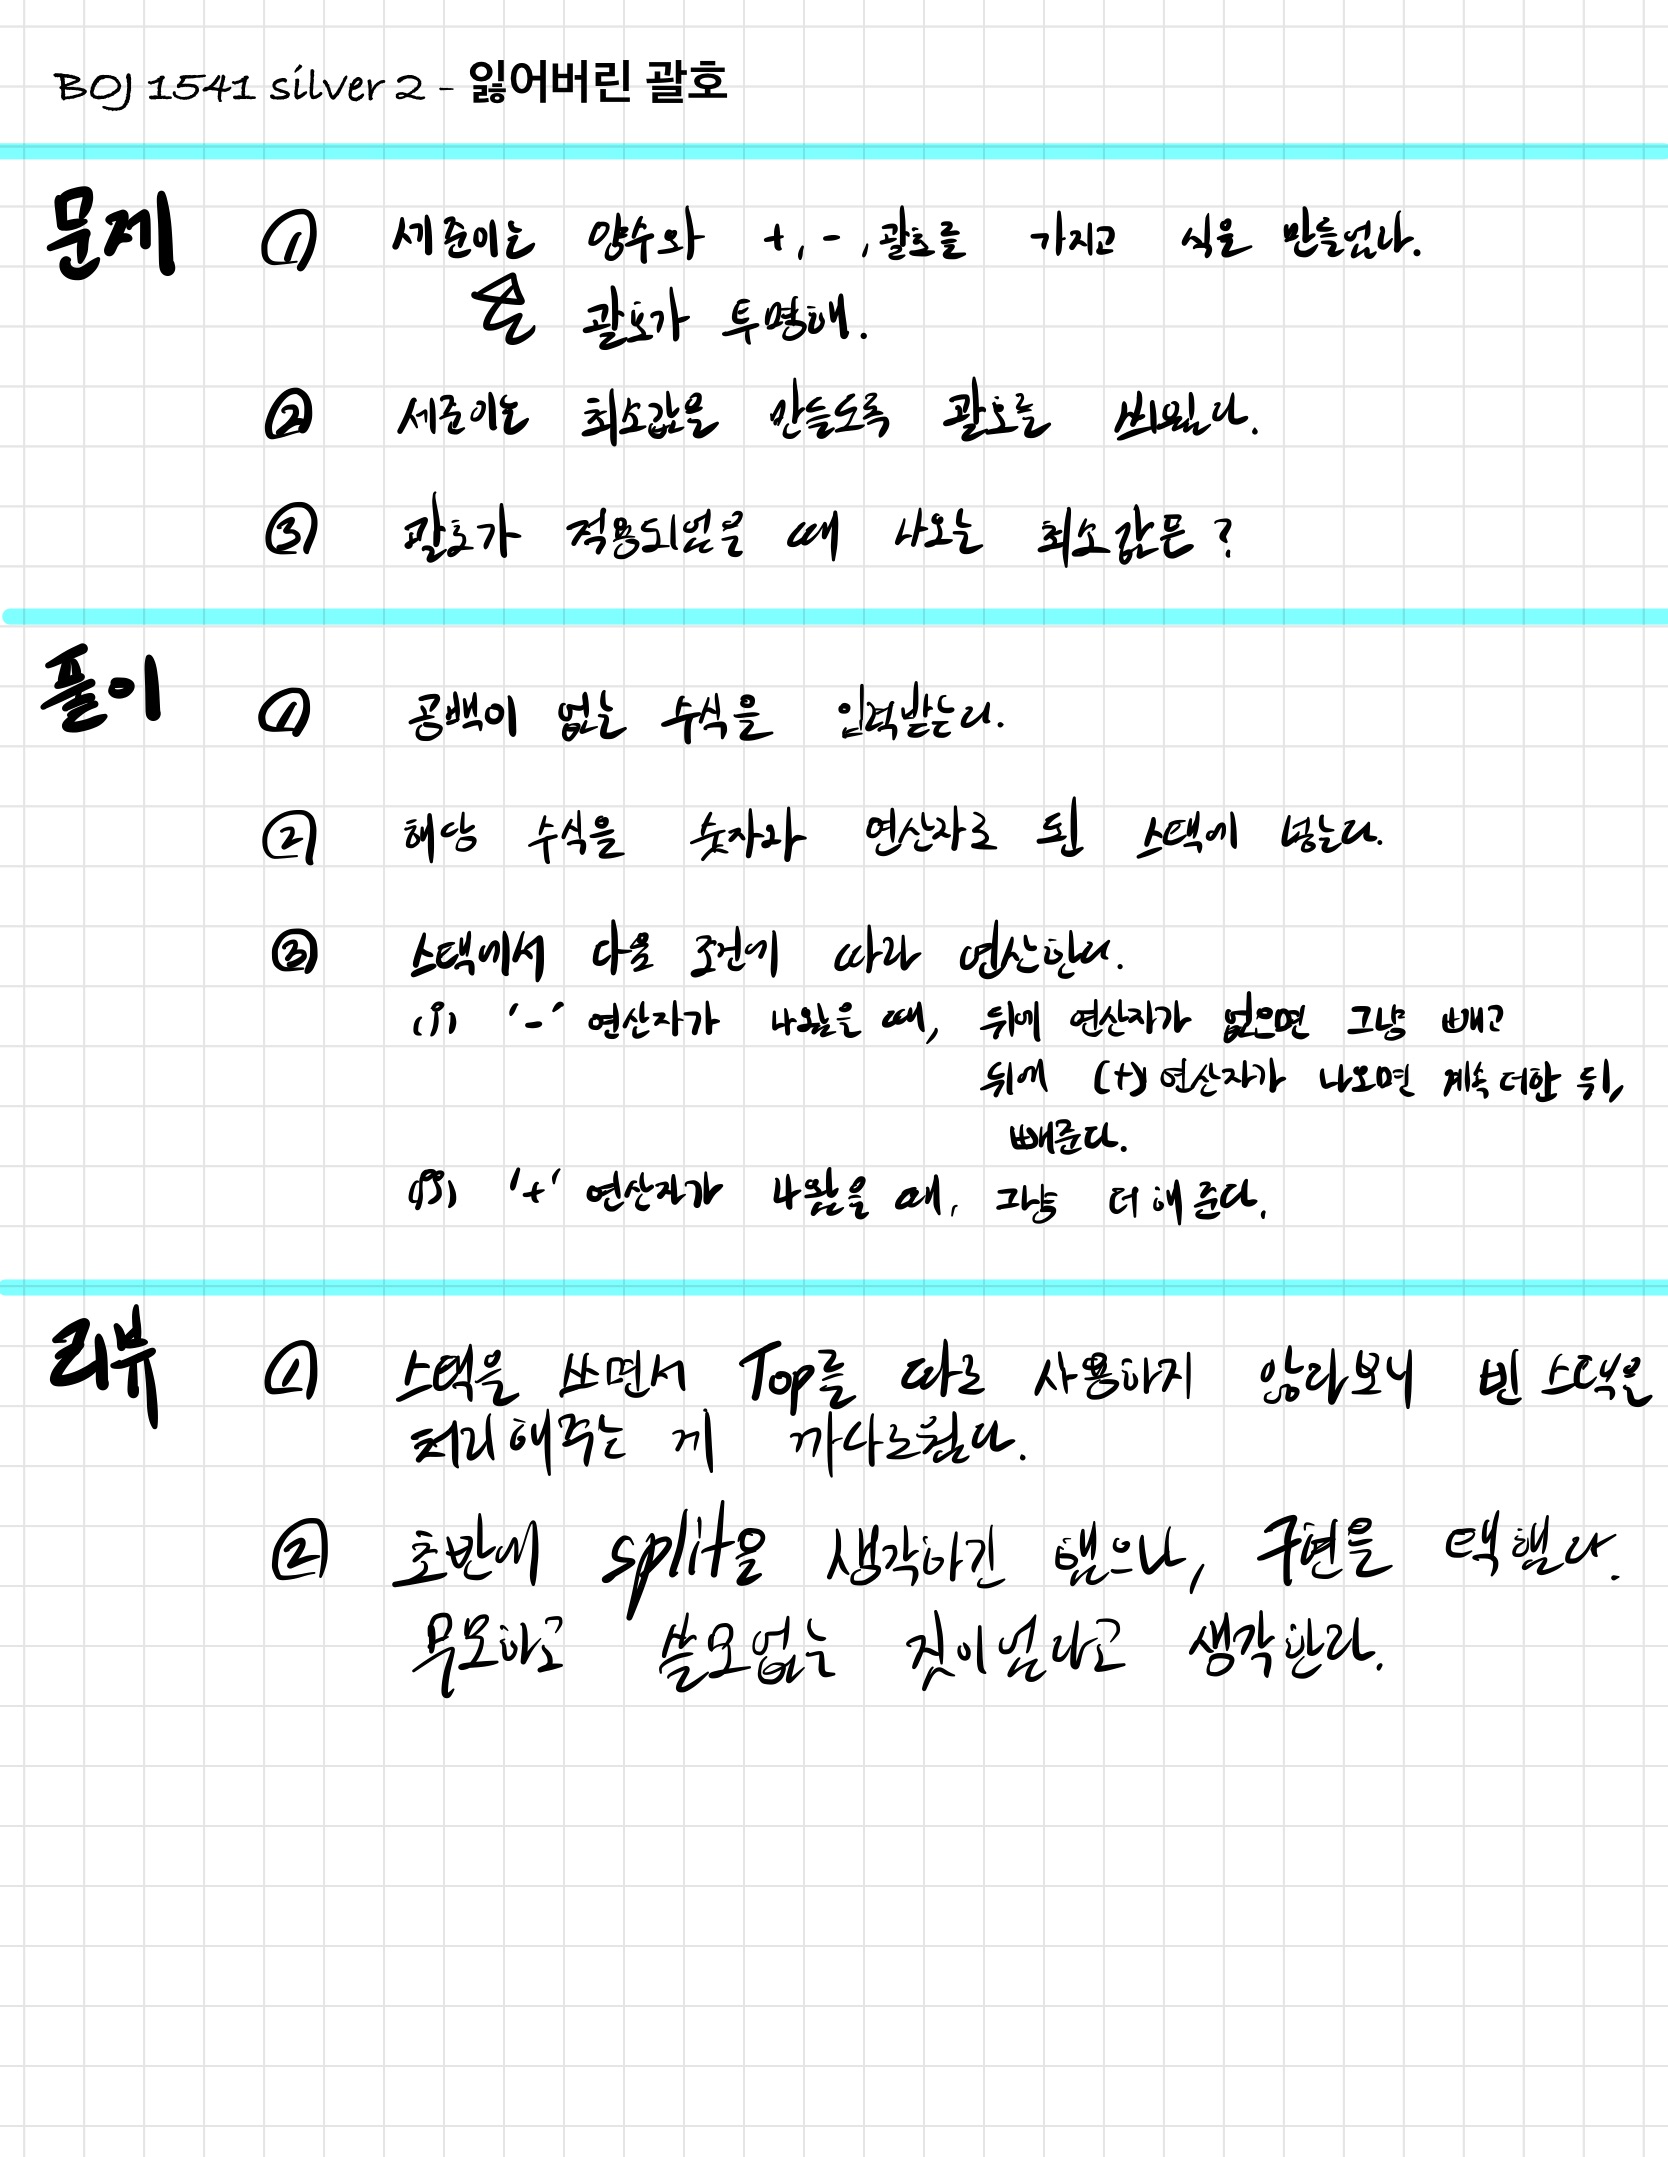 BOJ 1541 silver 2 - 잃어버린 괄호
문제 ① 세준이는 양수와 +, -, 괄호를 가지고 식을 만들었다.
괄호가 투명해.
② 세준이는 최소값을 만들도록 괄호를 씌웠다.
③ 괄호가 적용되었을 때 나오는 최소값은?
풀이 ① 공백이 없는 수식을 입력받는다.
② 해당 수식을 숫자와 연산자로 된 스택에 넣는다.
③ 스택에서 다음 조건에 따라 연산한다.
(i) '-' 연산자가 나왔을 때, 뒤에 연산자가 없으면 그냥 빼고
뒤에 (+) 연산자가 나오면 계속 더한 뒤,
빼준다.
(ii) '+' 연산자가 나왔을 때, 그냥 더해준다.
리뷰 ① 스택을 쓰면서 Top를 따로 사용하지 않다보니 빈 스택을
처리해주는 게 까다로웠다.
② 초반에 split을 생각하긴 했으나, 구현을 택했다.
무모하고 쓸모없는 짓이었다고 생각한다.